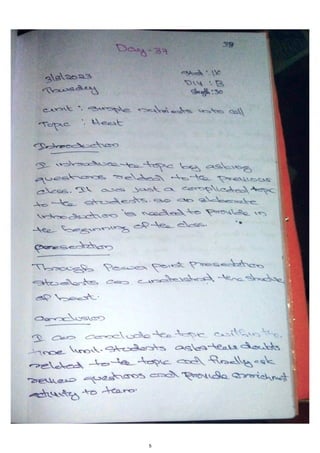 Day-37
38
3/8/2023
Thursday
Std : IX
DIV : B
Stngth : 30
Unit : Simple nutrients into cell
Topic : Heart
Introduction
I introduce the topic by asking
questions related to the previous
class. It was just a complicated topic
to the students. so an elaborate
introduction is needed to provide in
the beginning of the class.
presentation
Through Power Point Presentation
students can understand the structure
of heart.
Conclusion
I can conclude the topic within the
time limit. Students asks their doubts
related to the topic and finally ask
review questions and provide enrichment
activity to them.
5